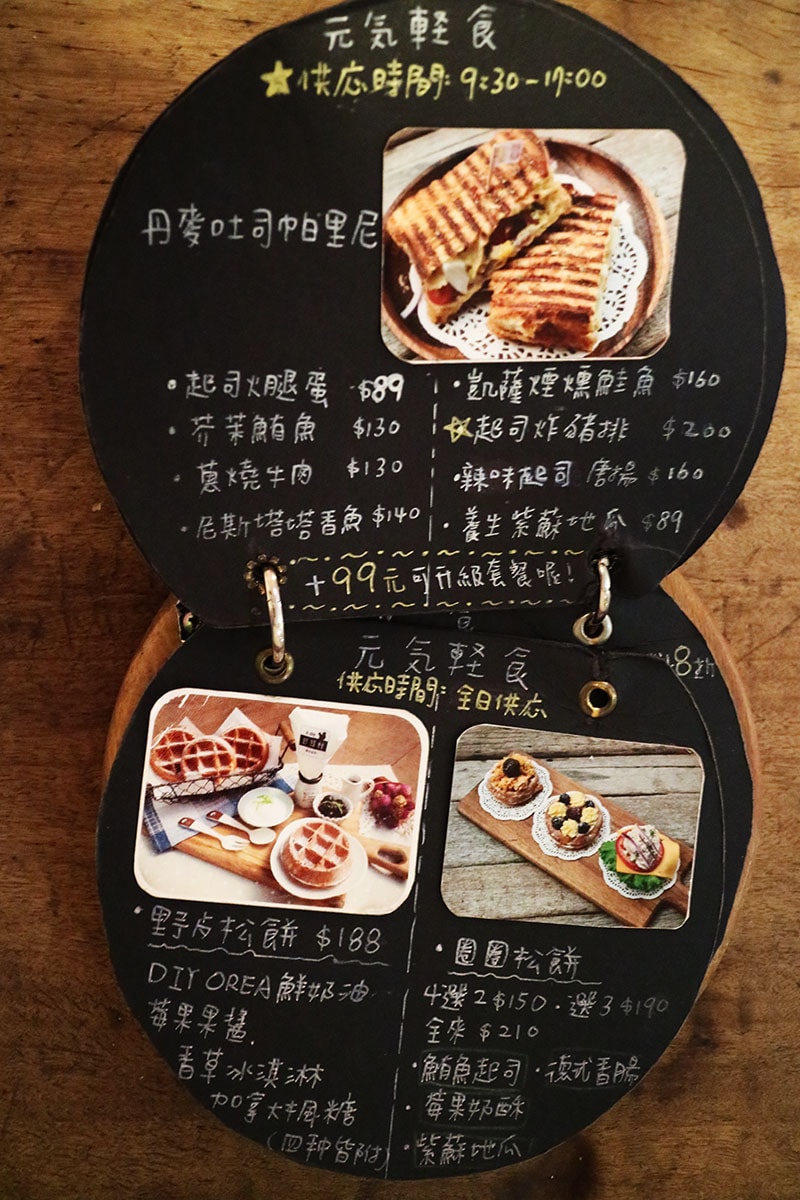 元気軽食
☆供応時間: 9:30-17:00
丹麥吐司帕里尼
・起司火腿蛋 $89
・芥茉鮪魚 $130
・蔥燒牛肉 $130
・尼斯塔塔香魚 $140
・凱薩煙燻鮭魚 $160
☆起司炸豬排 $200
・辣味起司唐揚 $160
・養生紫蘇地瓜 $89
+99元可升級套餐喔!
元気軽食
供応時間: 全日供応
・野点松餅 $188
DIY OREA鮮奶油
莓果果醬.
香草冰淇淋
加拿大楓糖
(四种皆附)
・圈圈松餅
4選2 $150・選3 $190
全來 $210
・鮪魚起司・德式香腸
・莓果奶酥
・紫蘇地瓜